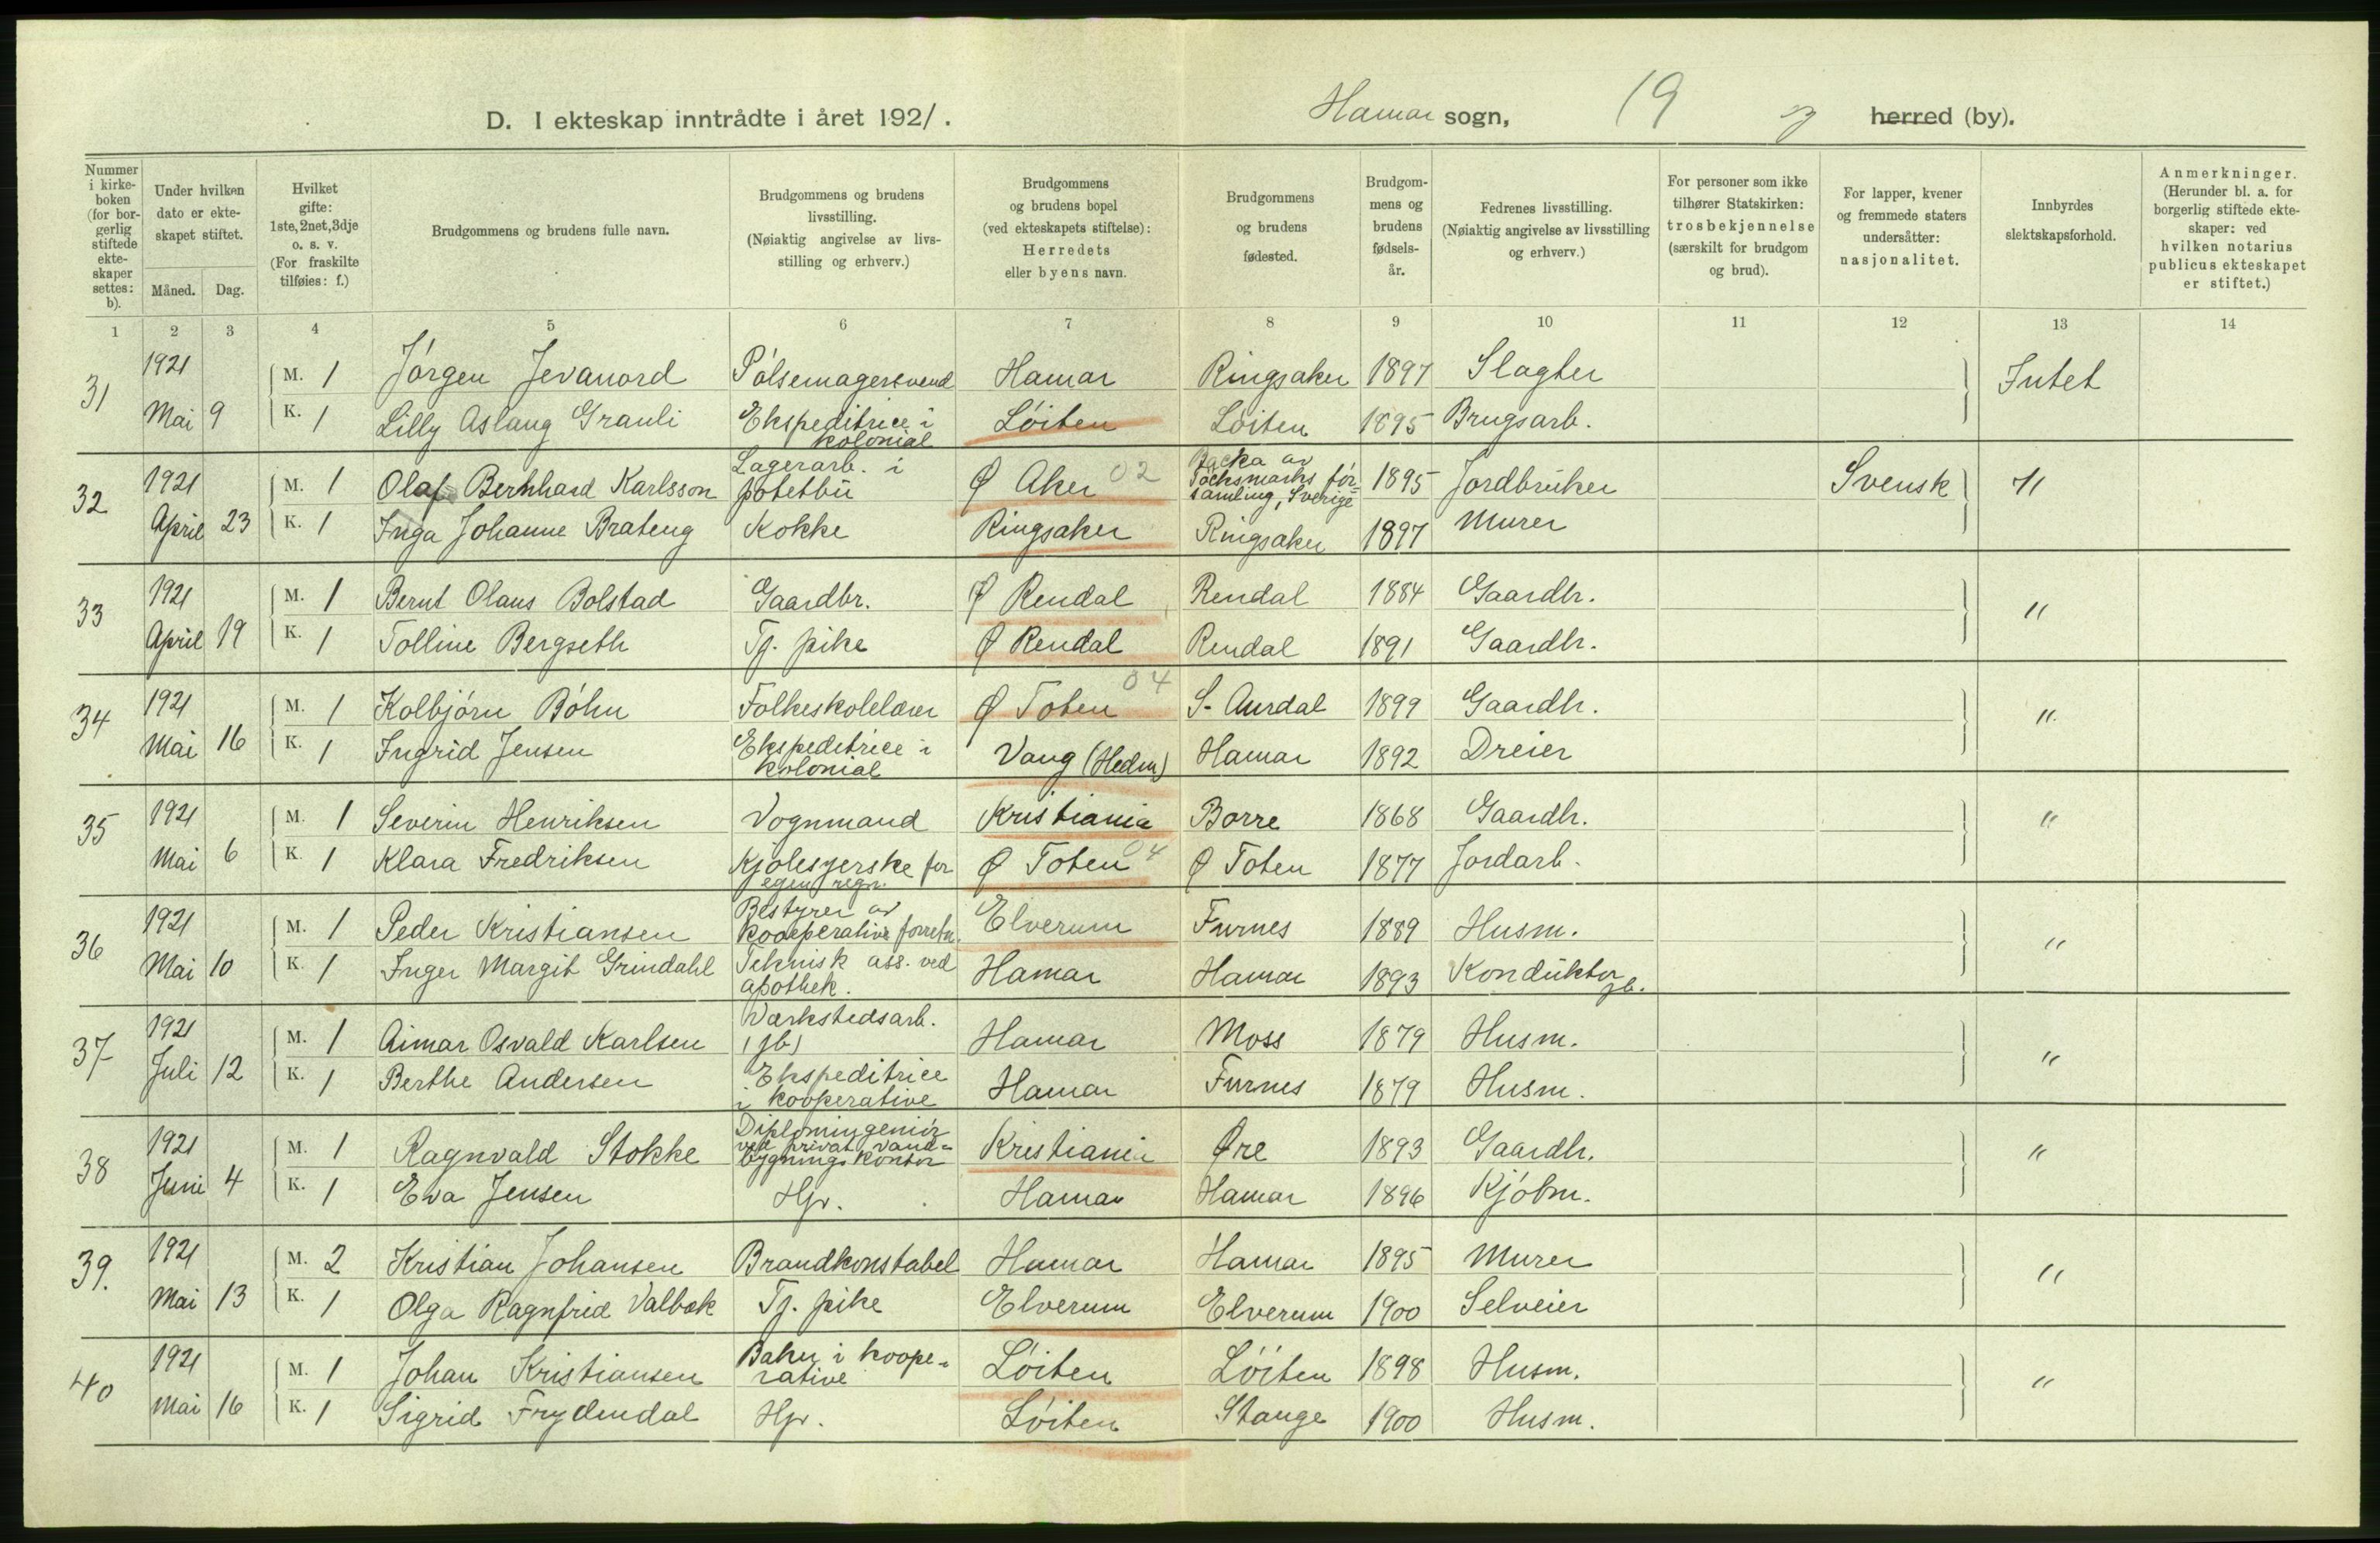 D. I ekteskap inntrådte i året 1921.
Hamar sogn, 19 herred (by).
Nummer i kirkeboken (for borgerlig stiftede ekteskaper settes: b).
Under hvilken dato er ekteskapet stiftet.
Måned. Dag.
Hvilket gifte: 1ste, 2net, 3dje o. s. v. (For fraskilte tilføies: f.)
Brudgommens og brudens fulle navn.
Brudgommens og brudens livsstilling. (Nøiaktig angivelse av livsstilling og erhverv.)
Brudgommens og brudens bopel (ved ekteskapets stiftelse): Herredets eller byens navn.
Brudgommens og brudens fødested.
Brudgommens og brudens fødselsår.
Fedrenes livsstilling. (Nøiaktig angivelse av livsstilling og erhverv.)
For personer som ikke tilhører Statskirken: trosbekjennelse (særskilt for brudgom og brud).
For lapper, kvener og fremmede staters undersåtter: nasjonalitet.
Innbyrdes slektskapsforhold.
Anmerkninger. (Herunder bl. a. for borgerlig stiftede ekteskaper: ved hvilken notarius publicus ekteskapet er stiftet.)
1 2 3 4 5 6 7 8 9 10 11 12 13 14
31 1921 M. 1 Jörgen Jevanord Pölsemagersvend Hamar Ringsaker 1897 Slagter Intet
Mai 9 K. 1 Lilly Aslaug Grauli Ekspeditrice i kolonial Löiten Löiten 1895 Brugsarb.
32 1921 M. 1 Olaf Bernhard Karlsson Lagerarb. i potetbu Ø Aker 02 Backa av Töcksmarks församling, Sverige 1895 Jordbruker Svensk "
April 23 K. 1 Inga Johanne Brateng Kokke Ringsaker Ringsaker 1897 Murer
33 1921 M. 1 Bernt Olaus Bolstad Gaardbr. Ø Rendal Rendal 1884 Gaardbr. "
April 19 K. 1 Tolline Bergseth Tj. pike Ø Rendal Rendal 1891 Gaardbr.
34 1921 M. 1 Kolbjörn Böhn Folkeskolelærer Ø Toten 04 S. Aurdal 1899 Gaardbr. "
Mai 16 K. 1 Ingrid Jensen Ekspeditrice i kolonial Vang (Hedm) Hamar 1892 Dreier
35 1921 M. 1 Severin Henriksen Vognmand Kristiania Borre 1868 Gaardbr. "
Mai 6 K. 1 Klara Fredriksen Kjolesyerske for egen regn. Ø Toten 04 Ø Toten 1877 Jordarb.
36 1921 M. 1 Peder Kristiansen Bestyrer av kooperative forretn. Elverum Furnes 1889 Husm. "
Mai 10 K. 1 Inger Margit Grindahl Teknisk ass. ved apothek. Hamar Hamar 1893 Konduktør jb.
37 1921 M. 1 Aimar Osvald Karlsen Værkstedsarb. (jb) Hamar Moss 1879 Husm. "
Juli 12 K. 1 Berthe Andersen Ekspeditrice i kooperative Hamar Furnes 1879 Husm.
38 1921 M. 1 Ragnvald Stokke Diplomingeniör ved privat vandbygningskontor Kristiania Øre 1893 Gaardbr. "
Juni 4 K. 1 Eva Jensen Hjv. Hamar Hamar 1896 Kjöbm.
39. 1921 M. 2 Kristian Johansen Brandkonstabel Hamar Hamar 1895 Murer "
Mai 13 K. 1 Olga Ragnfrid Valbæk Tj. pike Elverum Elverum 1900 Selveier
40 1921 M. 1 Johan Kristiansen Baker i kooperative Löiten Löiten 1898 Husm. "
Mai 16 K. 1 Sigrid Frydendal Hjv. Löiten Stange 1900 Husm.